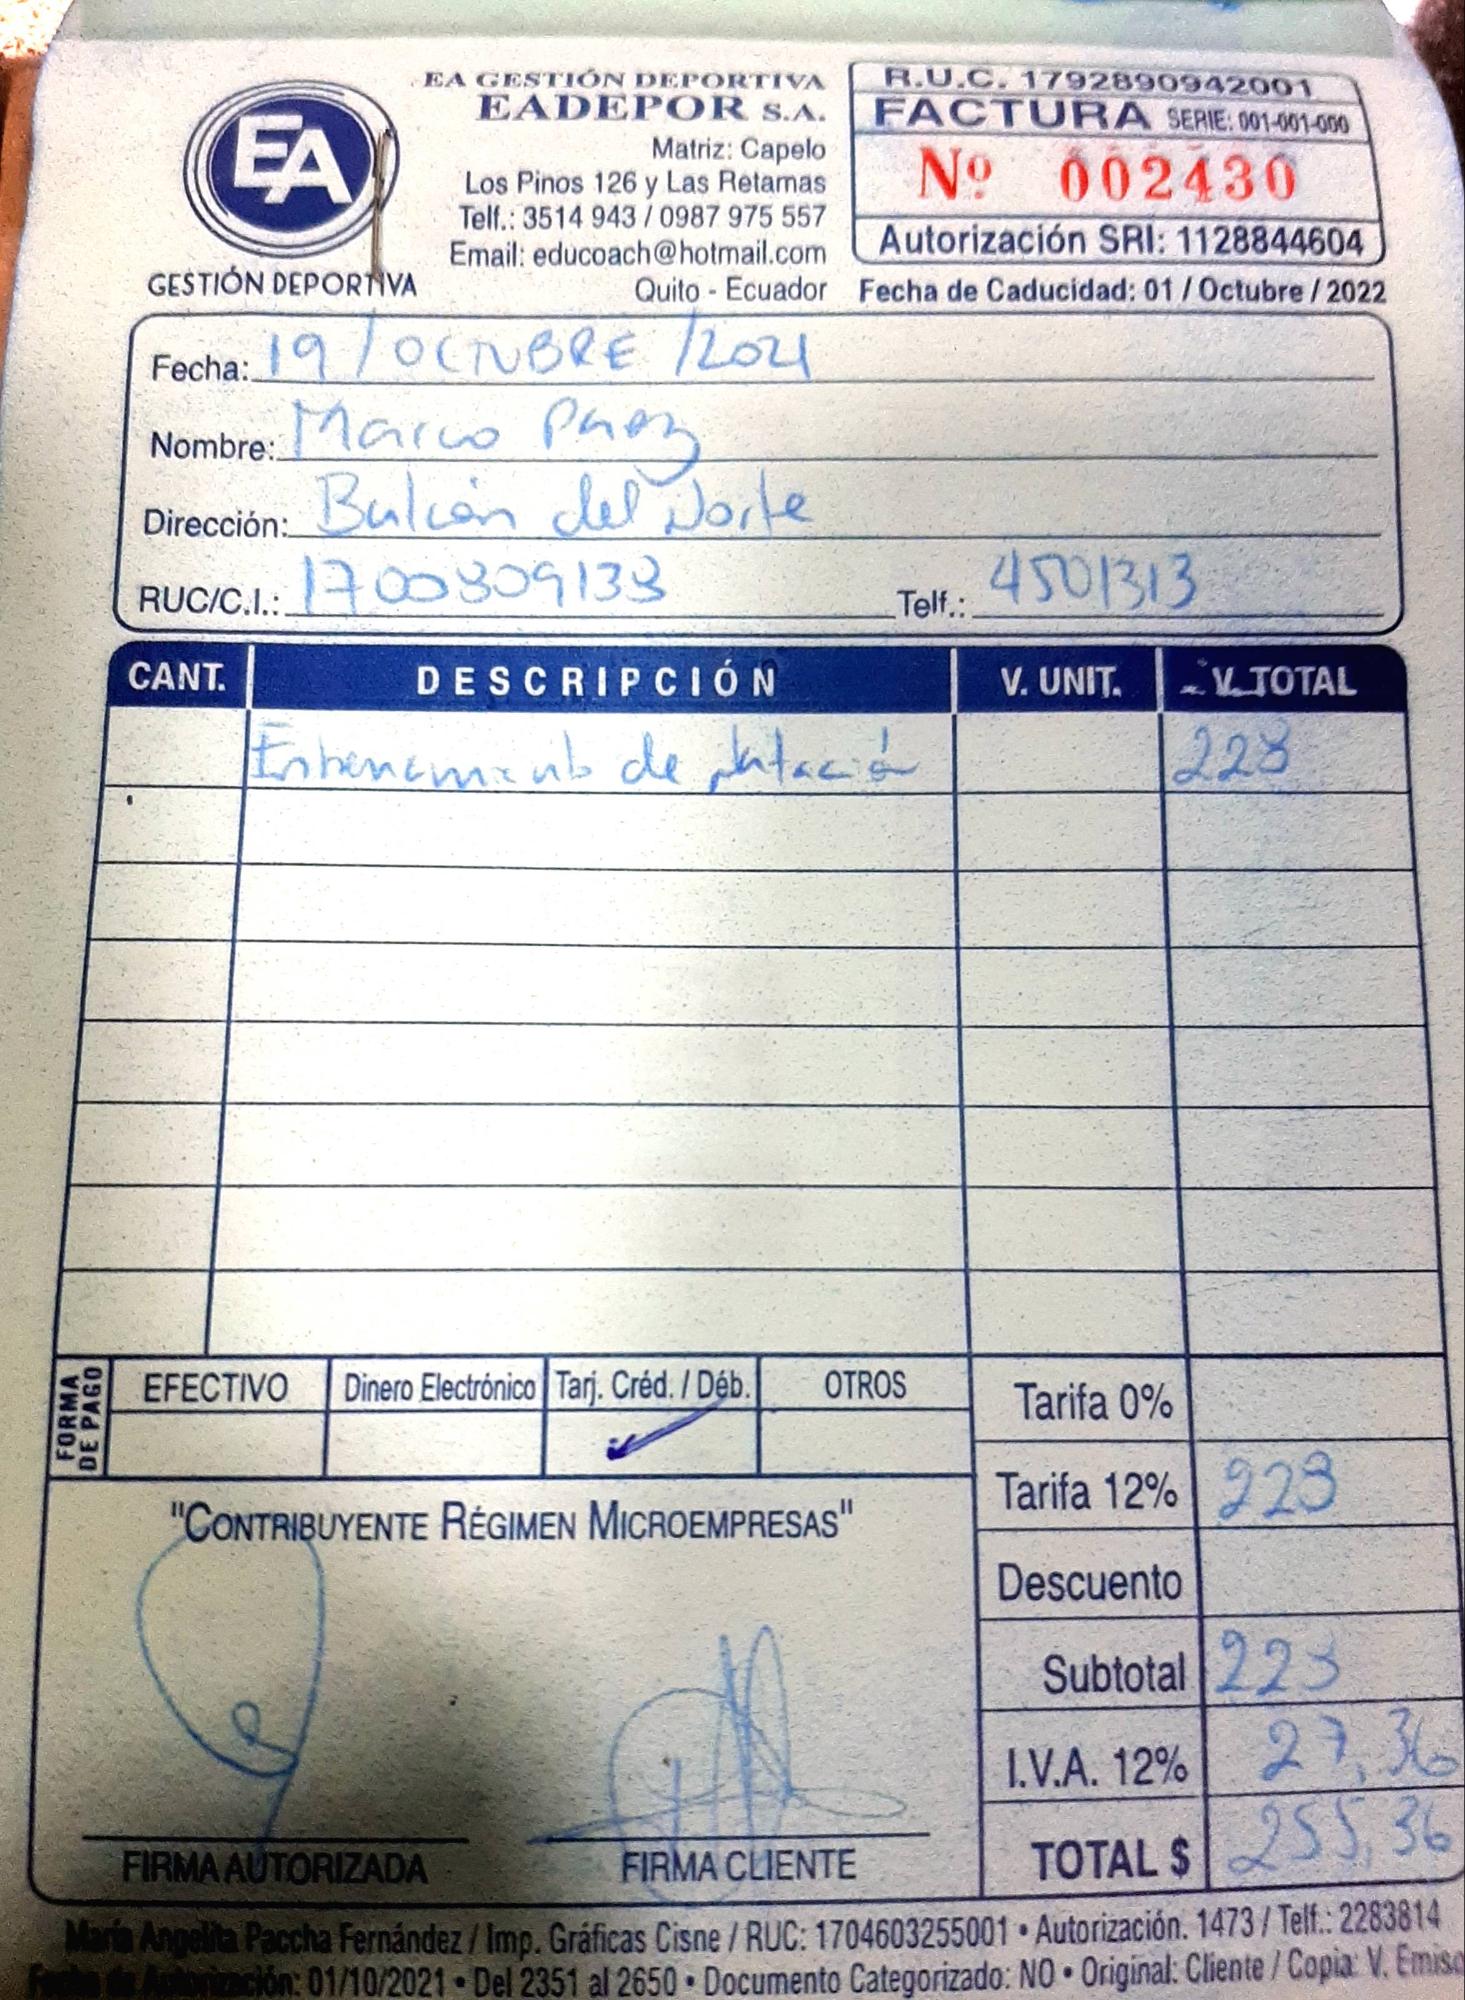 EA
GESTIÓN DEPORTIVA
EA GESTIÓN DEPORTIVA
EADEPOR S.A.
Matriz: Capelo
Los Pinos 126 y Las Retamas
Telf.: 3514 943 / 0987 975 557
Email: educoach@hotmail.com
Quito - Ecuador
R.U.C. 1792890942001
FACTURA SERIE: 001-001-000
Nº 002430
Autorización SRI: 1128844604
Fecha de Caducidad: 01 / Octubre / 2022
Fecha: 19 / OCTUBRE / 2021
Nombre: Marco Paez
Dirección: Balcón del Norte
RUC/C.I.: 1700809133 Telf.: 4501313
CANT. DESCRIPCIÓN V. UNIT. V. TOTAL
Entrenamiento de natación 228
FORMA DE PAGO
EFECTIVO Dinero Electrónico Tarj. Créd. / Déb. OTROS
Tarifa 0%
Tarifa 12% 228
Descuento
Subtotal 228
I.V.A. 12% 27,36
TOTAL $ 255,36
"CONTRIBUYENTE RÉGIMEN MICROEMPRESAS"
FIRMA AUTORIZADA FIRMA CLIENTE
María Angelita Paccha Fernández / Imp. Gráficas Cisne / RUC: 1704603255001 • Autorización. 1473 / Telf.: 2283814
Fecha de Autorización: 01/10/2021 • Del 2351 al 2650 • Documento Categorizado: NO • Original: Cliente / Copia: V. Emiso